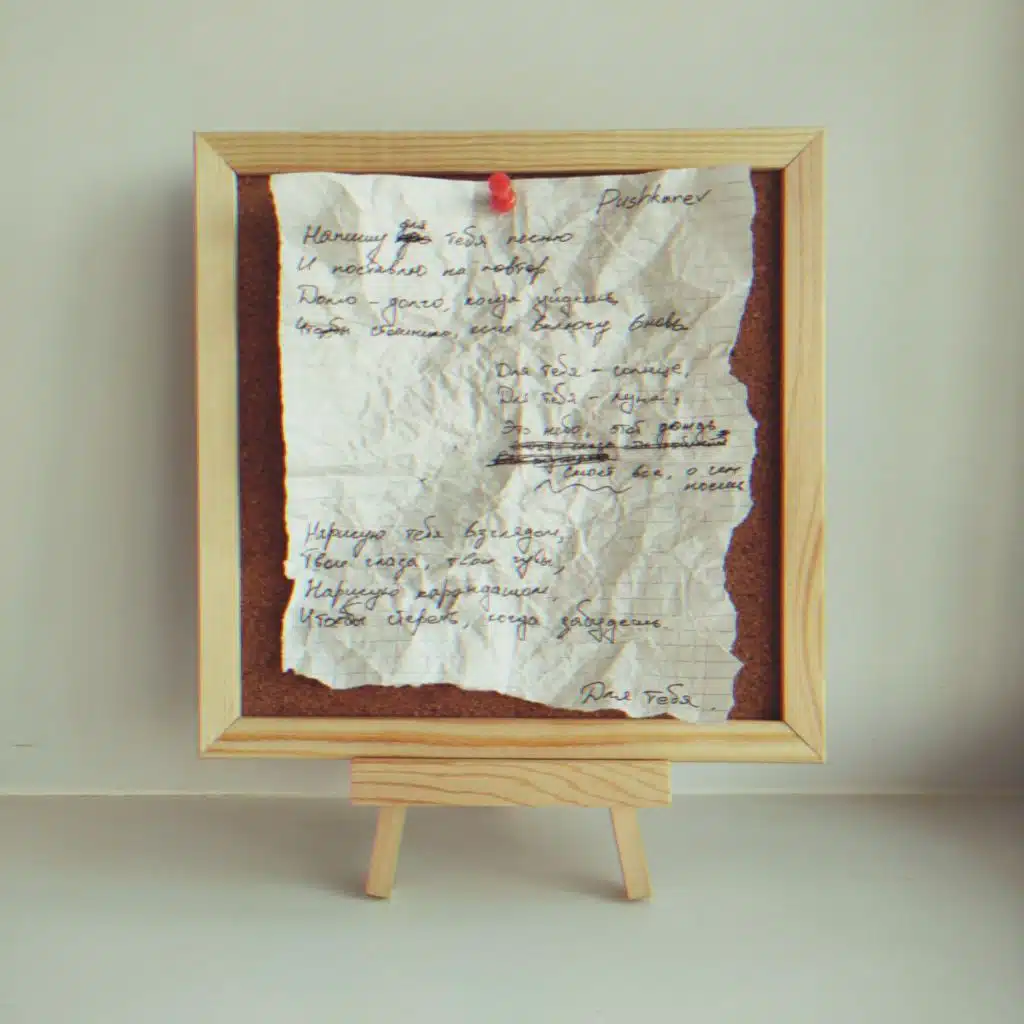 Pushkarev
Напишу для тебя песню
И поставлю на повтор
Долго - долго, когда уйдешь,
Чтобы стояло, если включу вновь
Для тебя - солнце,
Для тебя - луна,
Это небо, этот дождь
Смоет все, о чем
носим
Нарисую тебя взглядом,
Твои глаза, твои губы,
Нарисую карандашом,
Чтобы стереть, когда забудешь.
Для тебя...